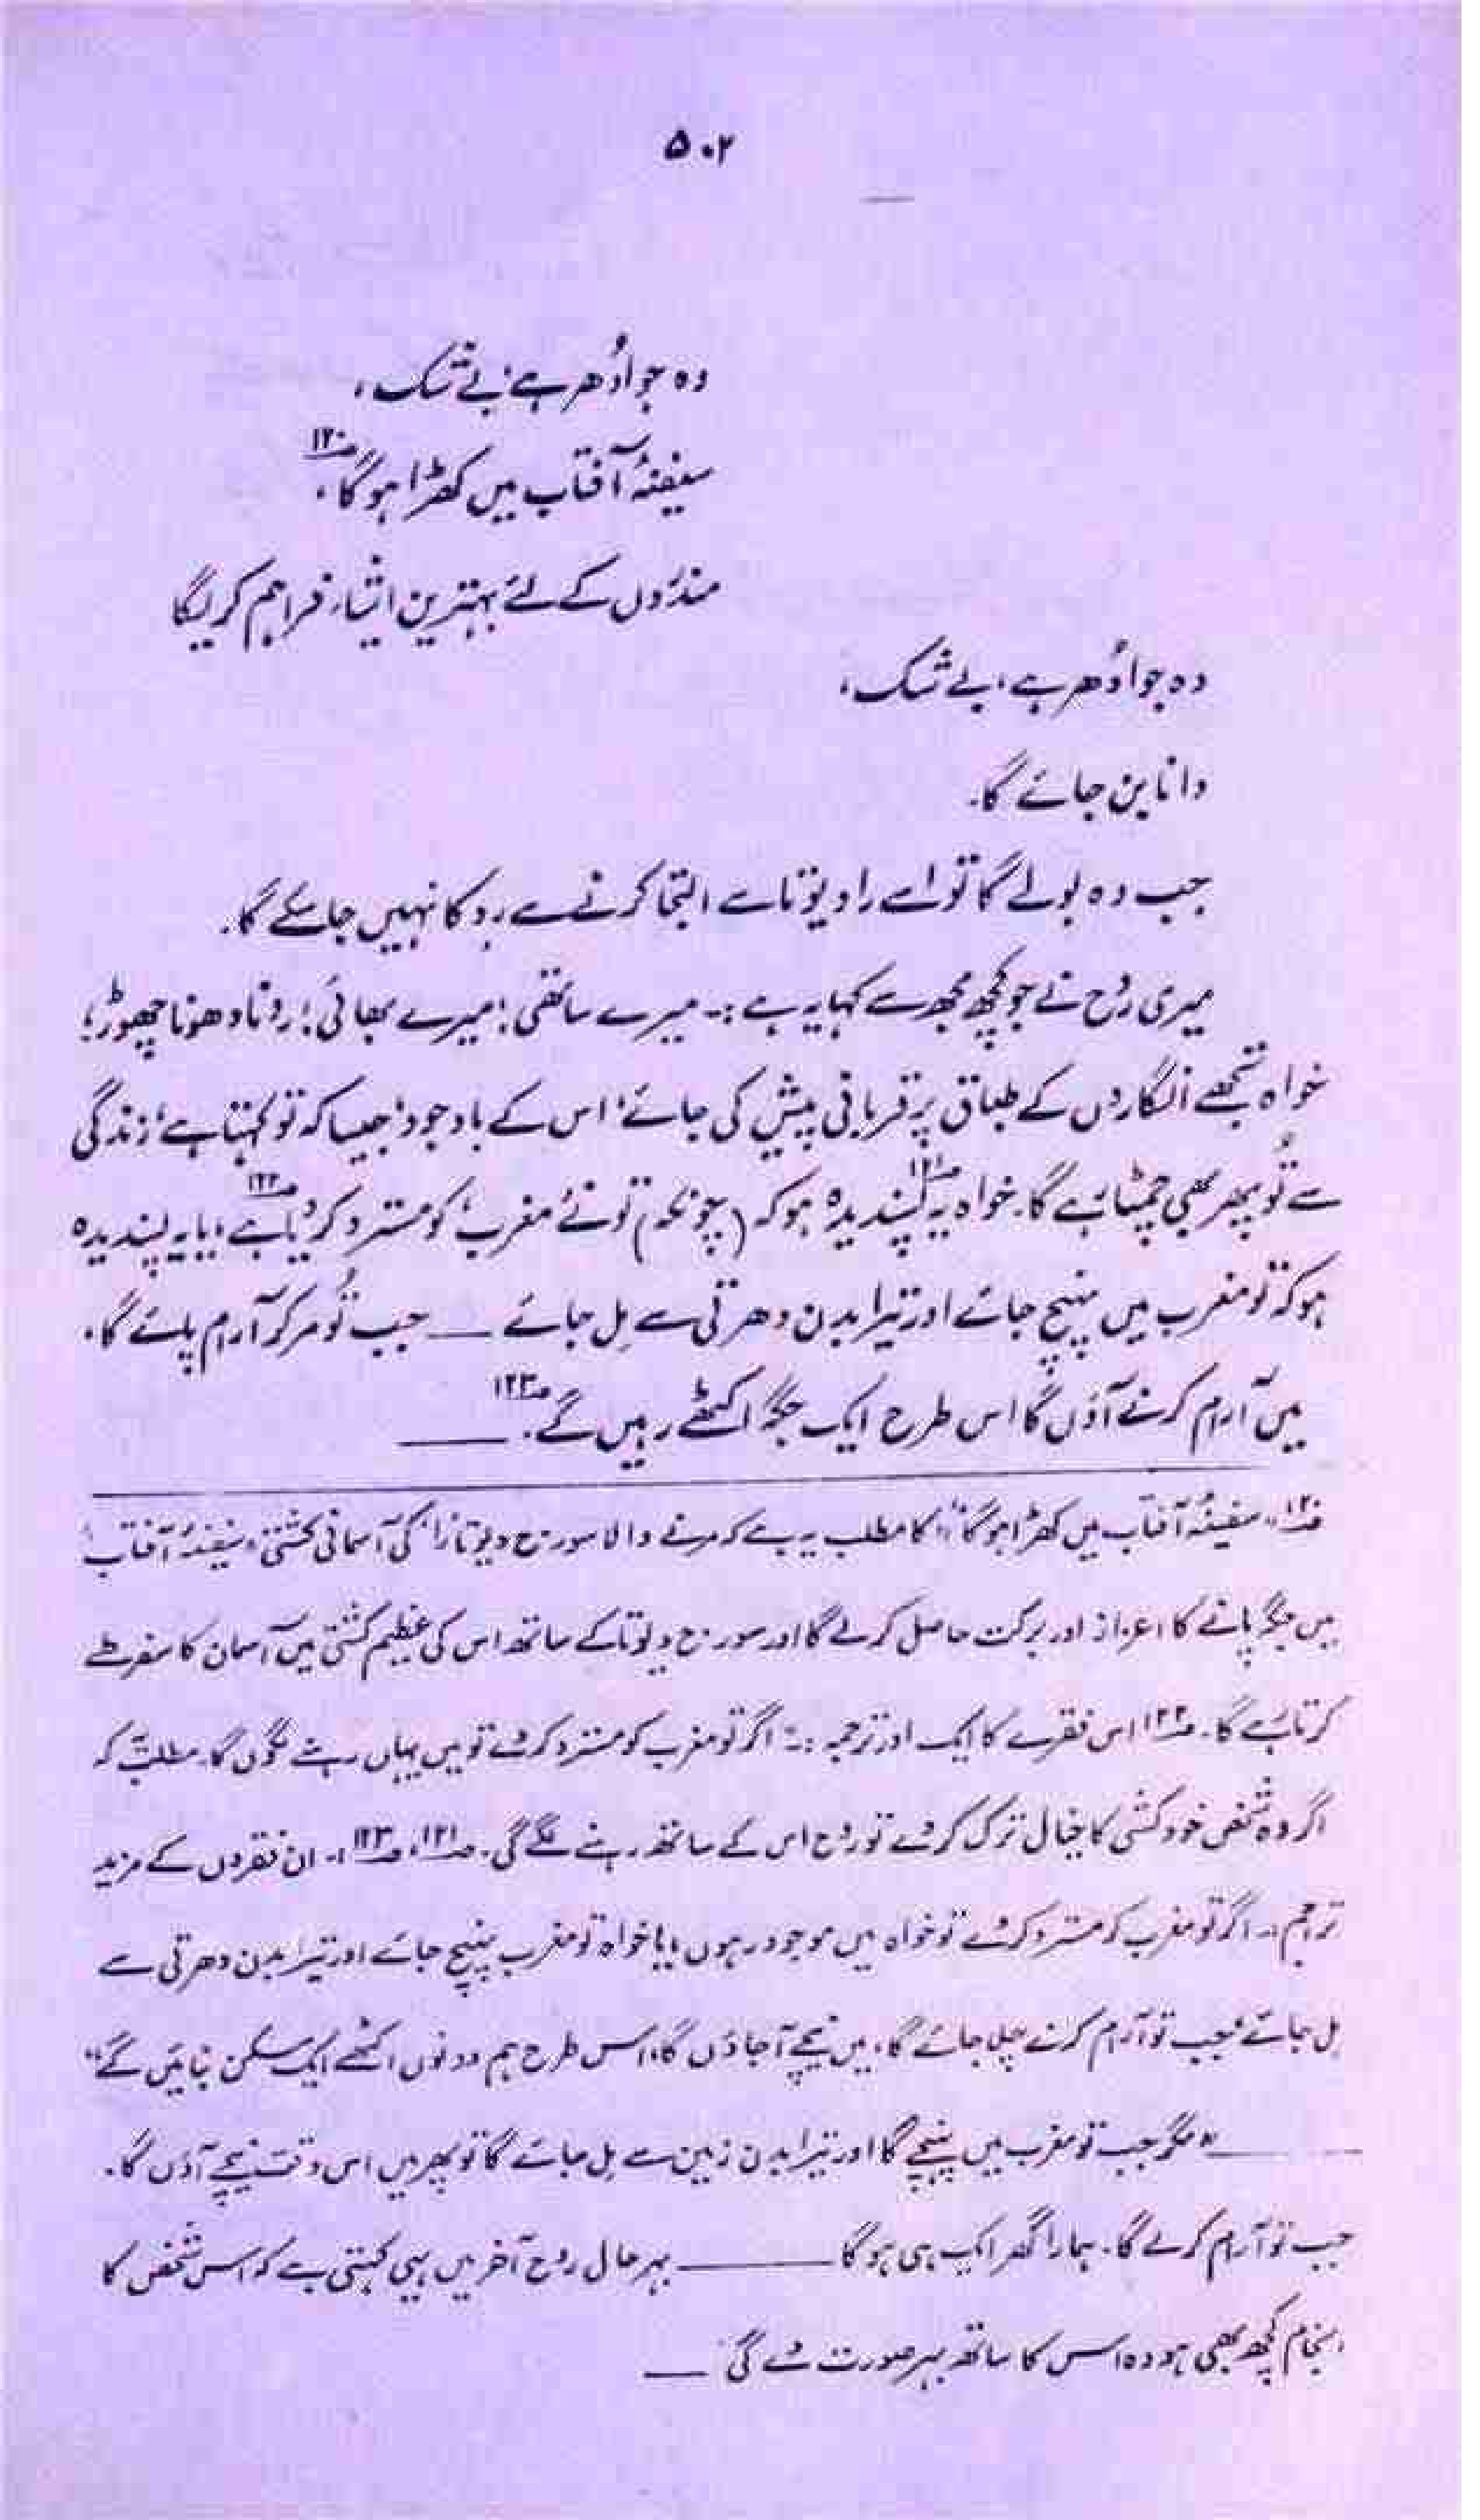 ۵۰۲
وہ جو اُدھر ہے، بے شک،
سفینۂ آفتاب میں کھڑا ہو گا، ؃۱۲۰
مندروں کے لئے بہترین اشیاء فراہم کریگا
وہ جو اُدھر ہے، بے شک،
دانا بن جائے گا۔
جب وہ بولے گا تو اسے را دیوتا سے التجا کرنے سے روکا نہیں جا سکے گا۔
میری رُوح نے جو کچھ مجھ سے کہا یہ ہے :۔ میرے ساتھی! میرے بھائی! رونا دھونا چھوڑ؛
خواہ تجھے انگاروں کے طباق پر قربانی پیش کی جائے، اس کے باوجود، جیسا کہ تو کہتا ہے، زندگی
سے تُو پھر بھی چمٹا رہے گا۔ خواہ یہ ؃۱۲۱ پسندیدہ ہو کہ (چونکہ) تو نے مغرب، کو مسترد کر دیا ہے، ؃۱۲۲ یا یہ پسندیدہ
ہو کہ تو مغرب میں پہنچ جائے اور تیرا بدن دھرتی سے مِل جائے —— جب تُو مر کر آرام پائے گا،
میں آرام کرنے آؤں گا اس طرح ایک جگہ اکٹھے رہیں گے۔ ؃۱۲۳ ——
؃۱۲۰ "سفینۂ آفتاب میں کھڑا ہو گا" کا مطلب یہ ہے کہ مرنے والا سورج دیوتا 'را' کی آسمانی کشتی، سفینۂ آفتاب'
میں جگہ پانے کا اعزاز اور برکت حاصل کرلے گا اور سورج دیوتا کے ساتھ اس کی عظیم کشتی میں آسمان کا سفر طے
کرتا رہے گا۔ ؃۱۲۲ اس فقرے کا ایک اور ترجمہ :۔ اگر تو مغرب کو مسترد کر دے تو میں یہاں رہنے لگوں گا۔ مطلب یہ کہ
اگر وہ شخص خودکشی کا خیال ترک کر دے تو روح اس کے ساتھ رہنے لگے گی۔ ؃۱۲۱، ؃۱۲۳ :۔ ان فقروں کے مزید
تراجم :۔ اگر تو مغرب کو مسترد کر دے تو خواہ میں موجود رہوں، یا خواہ تو مغرب پہنچ جائے اور تیرا بدن دھرتی سے
مل جائے، جب تو آرام کرنے چلا جائے گا، میں نیچے آ جاؤں گا، اس طرح ہم دونوں اکٹھے ایک مسکن بنائیں گے"
—— "مگر جب تو مغرب میں پہنچے گا اور تیرا بدن زمین سے مل جائے گا تو پھر میں اس وقت نیچے آؤں گا،
جب تو آرام کرلے گا۔ ہمارا گھر ایک ہی ہو گا —— بہر حال روح آخر میں یہی کہتی ہے کہ اس شخص کا
انجام کچھ بھی ہو وہ اس کا ساتھ بہر صورت دے گی ——